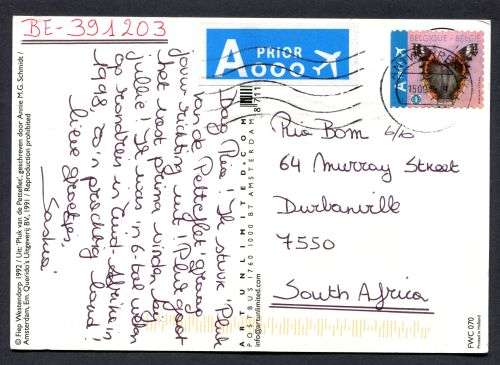 BE-391203
A PRIOR
BELGIQUE - BELGIË
Dag Ria! Ik stuur 'Pluk
van de Petteflet' graag
jouw richting uit! Pluk gaat
het vast prima vinden bij
jullie! Ik was in
op rondreis in Zuid-Afrika in
1998. Zo'n prachtig land!
Lieve groetjes,
Saskia.
Ria Bom
64 Murray Street
Durbanville
7550
South Africa
© Fiep Westendorp 1992 / Uit: 'Pluk van de Petteflet', geschreven door Annie M.G. Schmidt
Amsterdam, Em. Querido's Uitgeverij BV, 1991 / Reproduction prohibited
ARTUNLIMITED.COM
POSTBUS 1760 1000 BT AMSTERDAM
info@artunlimited.com
8 711
FWC 070
Printed in Holland